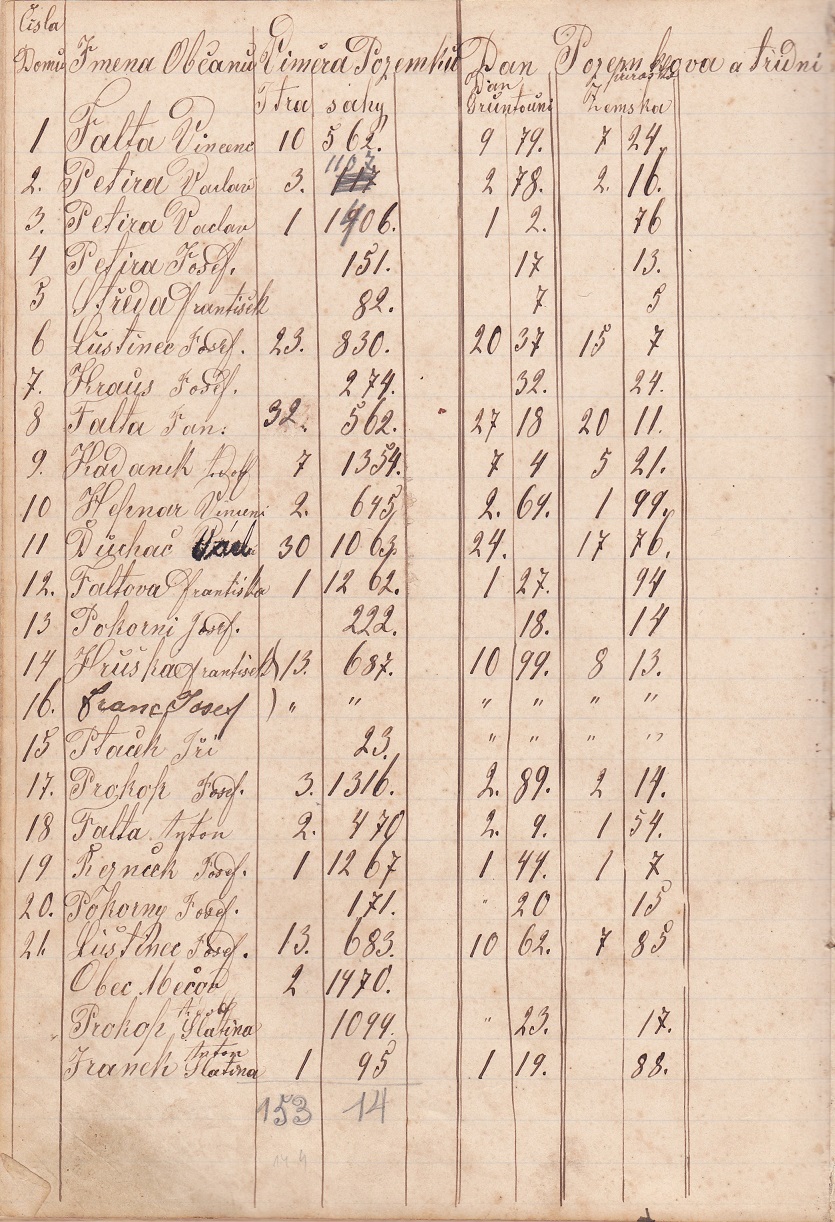 Čisla
Domu Jmena Občanu Vimera Pozemků Dan Pozemkova a třidni
Dan přirožka
Jtra sahy Gruntouni Zemska
1 Falta Vincenc 10 562. 9 79. 7 24
1107.
2. Petira Vaclav 3. 117 2 78. 2. 16.
3. Petira Vaclav 1 1406. 1 2. 76
4 Petira Josef. 151. 17 13.
5 Středa František 82. 7 5
6 Luštinec Josef. 23. 830. 20 37 15 7
7. Kraus Josef. 274. 32. 24.
8 Falta Jan: 32. 562. 27 18 20 11.
9. Kadanik Josef 7 1354. 7 4 5 21.
10 Hepnar Vincenc 2. 645 2. 69. 1 99.
11 Duchač 30 1063. 24. 17 76.
12. Faltova Františka 1 1262. 1 27. 94
13 Pokorni Josef. 222. 18. 14
14 Hruška František ) 13. 687. 10 99. 8 13.
16. Franc Josef ) " " " " " "
15 Ptaček Jři 23. " " " "
17. Prokop Josef. 3. 1316. 2. 89. 2 14.
18 Falta Anton 2. 470 2. 9. 1 54.
19 Josef. 1 1267 1 44. 1 7
20. Pokorny Josef. 171. " 20 15
21. Luštinec Josef. 13. 683. 10 62. 7 85
Obec Mečov 2 1470.
Prokop Slatina 1094. " 23. 17.
Anton
Franek Slatina 1 95 1 19. 88.
153 14